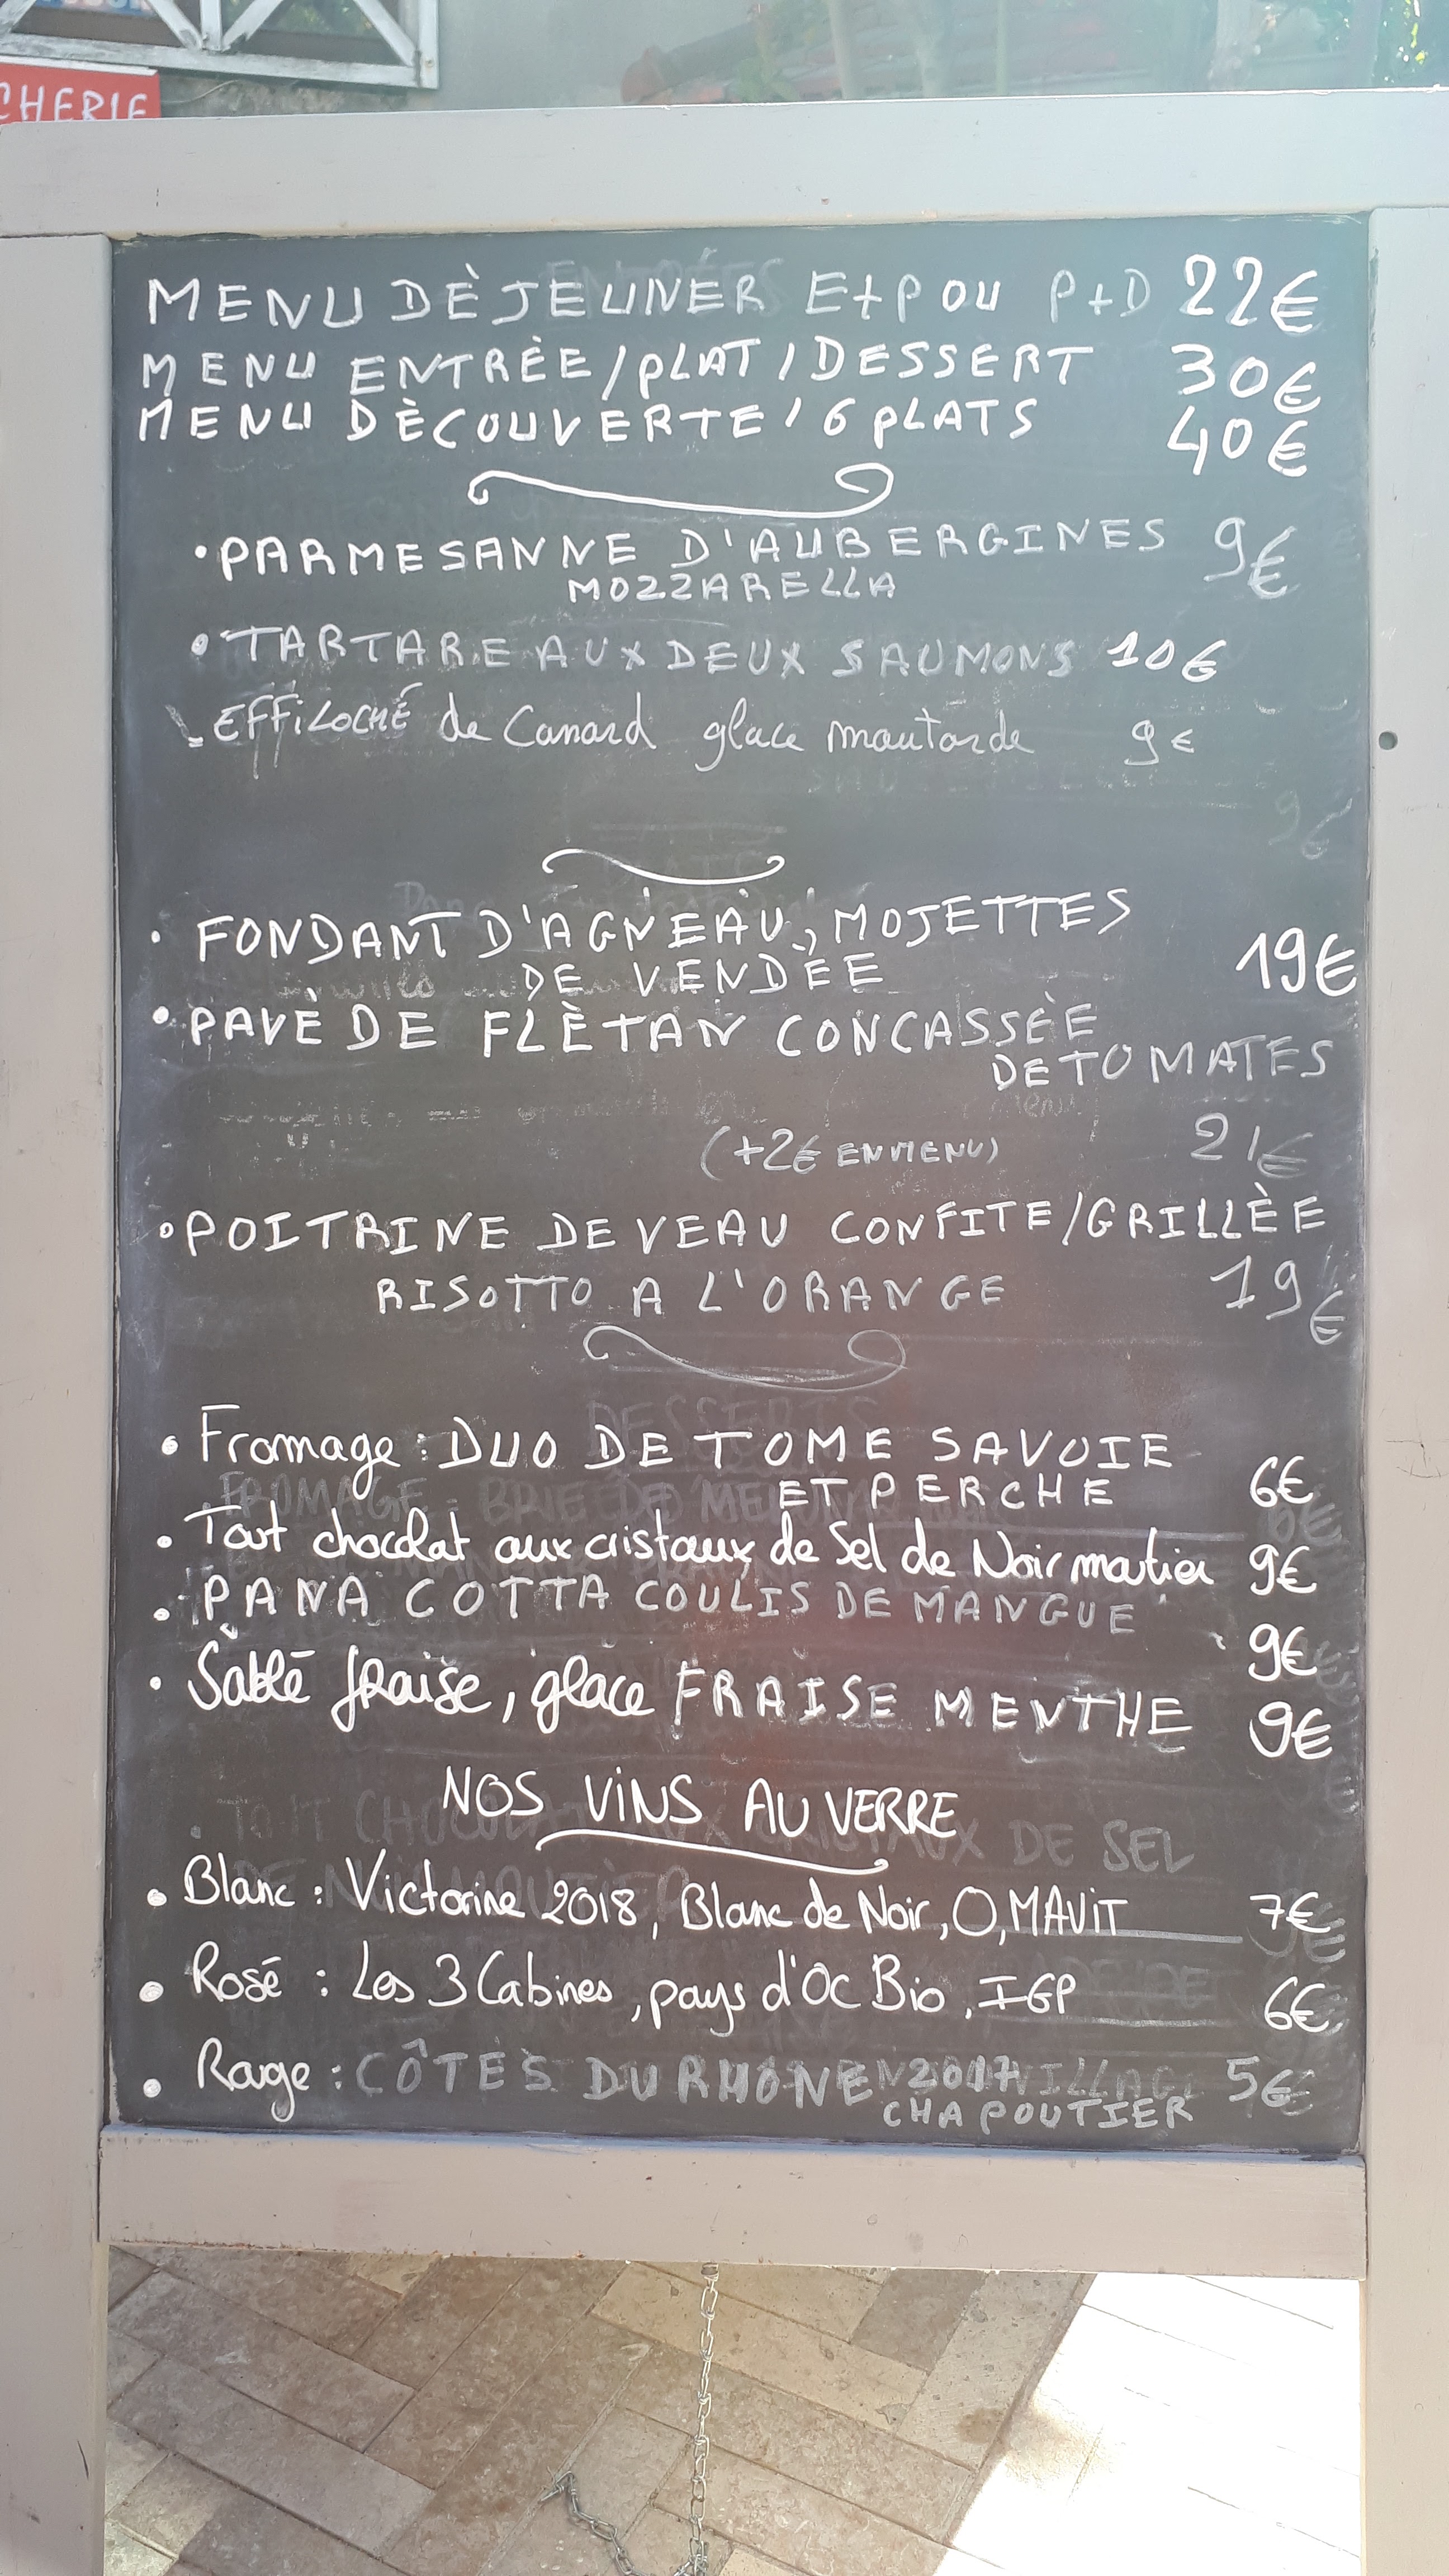 CHERIE
MENU DÈJEUNER E+P OU P+D 22€
MENU ENTRÈE/PLAT/DESSERT 30€
MENU DÈCOUVERTE/6 PLATS 40€
• PARMESANNE D'AUBERGINES 9€
MOZZARELLA
• TARTARE AUX DEUX SAUMONS 10€
EFFILOCHÉ de Canard glace moutarde 9€
• FONDANT D'AGNEAU, MOJETTES
DE VENDÉE 19€
• PAVÈ DE FLÈTAN CONCASSÈE
DE TOMATES
(+2€ EN MENU) 21€
• POITRINE DE VEAU CONFITE/GRILLÈE
RISOTTO A L'ORANGE 19€
DESSERTS
• Fromage : DUO DE TOME SAVOIE
ET PERCHE 6€
• Tout chocolat aux cristaux de Sel de Noirmoutier 9€
• PANA COTTA COULIS DE MANGUE 9€
• Sablé fraise, glace FRAISE MENTHE 9€
NOS VINS AU VERRE
• Blanc : Victorine 2018, Blanc de Noir, O, MAVIT 7€
• Rosé : Les 3 Cabines, pays d'Oc Bio, IGP 6€
• Rouge : CÔTES DU RHÔNE 2017 5€
CHAPOUTIER